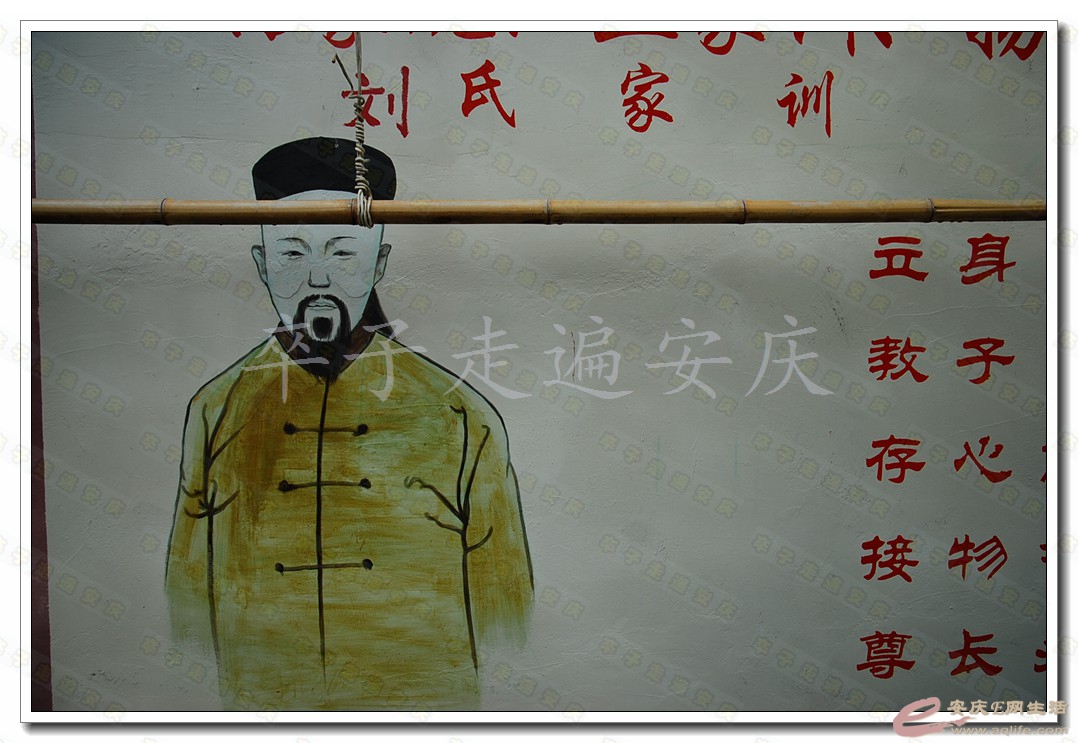 刘氏家训
立身
教子
存心
接物
尊长
卒子走遍安庆
安庆E网生活
www.aqlife.com